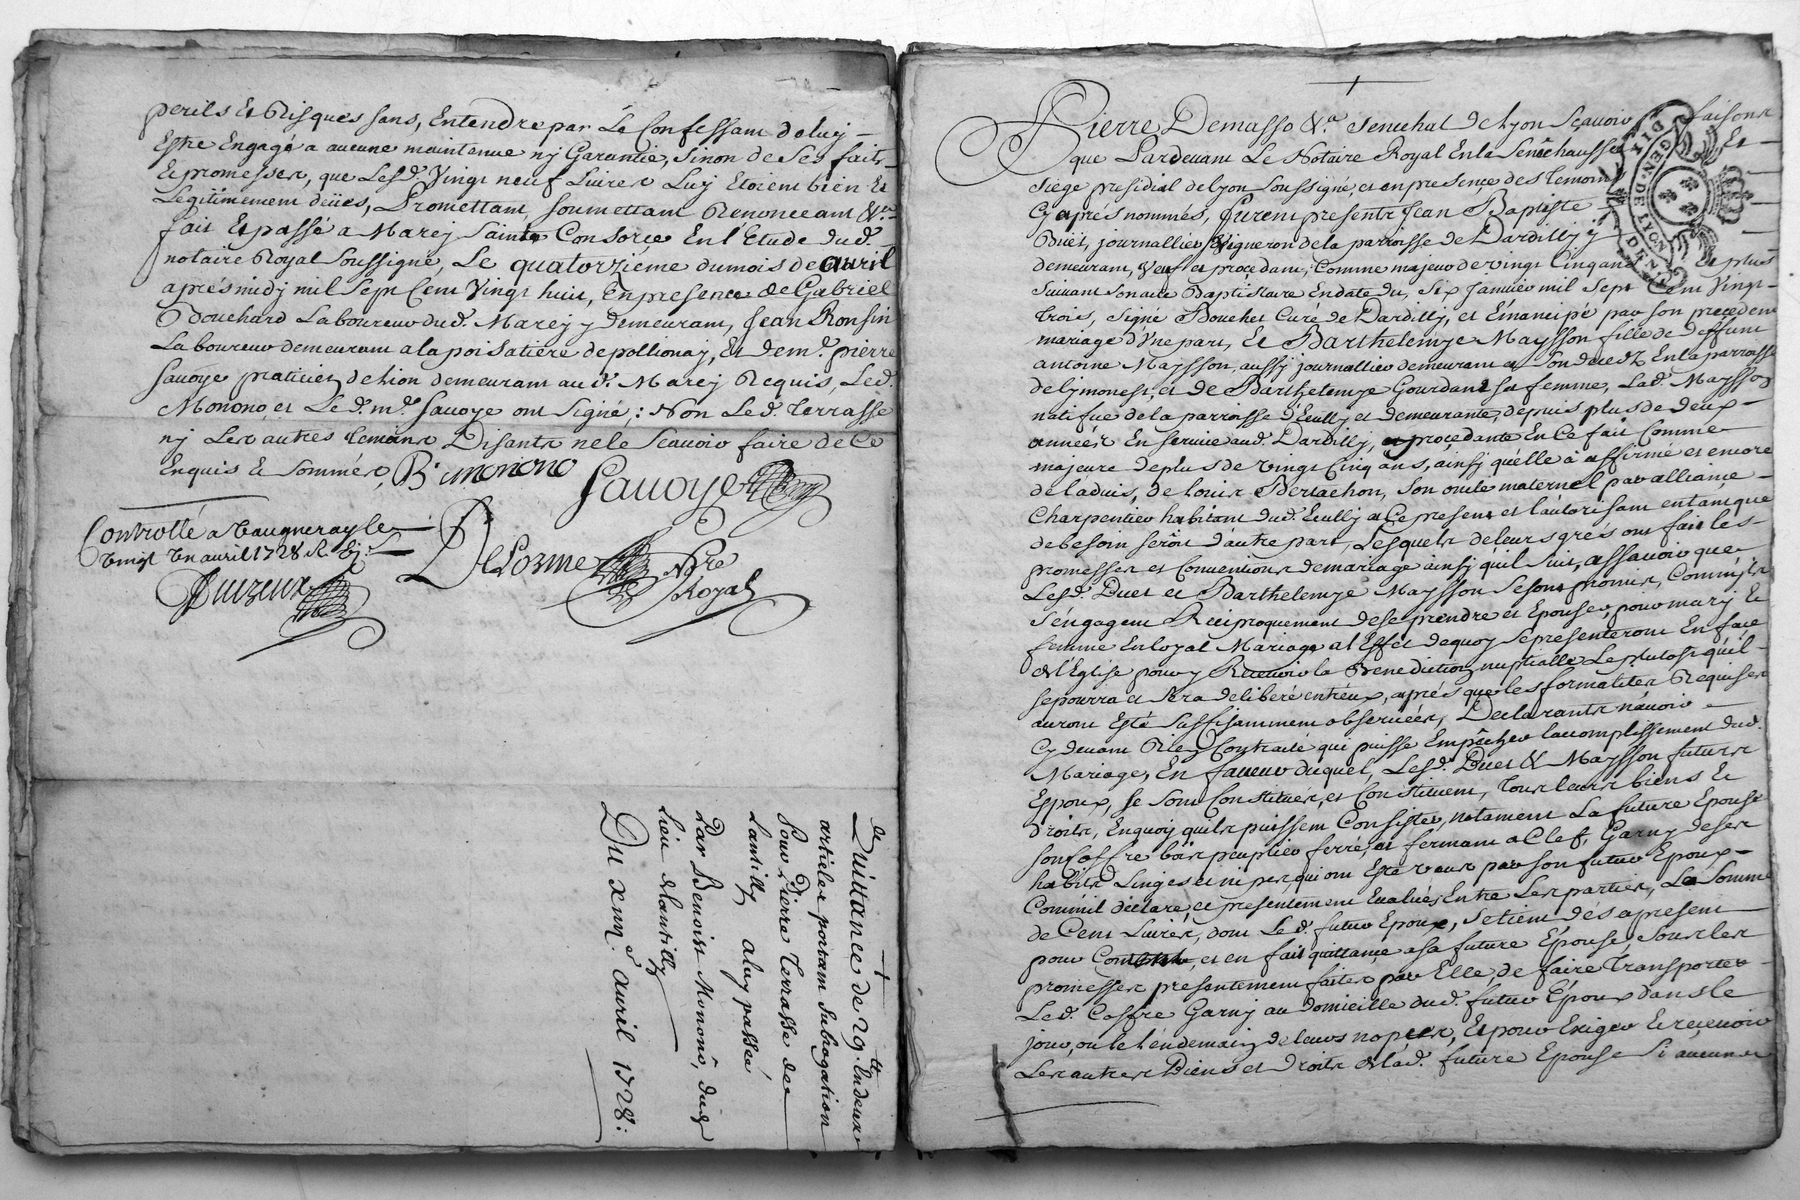 perils et Risques sans, Entendre par Le Confessant doluy
Estre Engagé a aucune maintenue nj Garantie, sinon de ses faits
Et promesses, que Lesd. Vingt neuf Livres Luy Etoient bien Et
Legitimement deües, Promettant, soumettant Renonceant &.a
fait Et passé a Marcy Sainte Consorce En l'Etude dud.
notaire Royal soussigné, Le quatorzieme du mois de avril
aprés midj mil sept Cent Vingt huit, En presence de Gabriel
Bouchard Laboureur dud. Marcy y demeurant, Jean Ronsin
Laboureur demeurant a la poisatiere de pollionay, Et de m.e pierre
Savoye praticien de Lion demeurant aud. Marcy Requis, Led.
Monono, et Led. m.e Savoye ont signé; Non Led. Terrasse
nj Les autres temoins Disants ne le scauoir faire de Ce
Enquis Et sommés, B. monono
Sauoye
Controllé a Vaugneray le
Vingt Un auril 1728 R.
Delorme Nre
Royal
+
Quittance de 29.tt En deux
articles portant subrogation
Pour Pierre Terrasse de
Lantilly a luy passée
Par Benoist Monono, dud.
Lieu de Lantilly
Du xiiij.e auril 1728:
+
Pierre Demasso &.a senechal de Lyon Scauoir faisons
que Pardeuant Le Notaire Royal En la Senéchaussée Et
siege presidial de Lyon soussigné, et en presence des temoins
Cy aprés nommés, furent presents Jean Baptiste
Duet, journallier Vigneron de la parroisse de Dardilly y
demeurant, veuf et procedant, Comme majeur de vingt Cinq ans Et plus
suivant son acte Baptistaire En date du, six Januier mil sept Cent Vingt
trois, signé Bouchet Curé de Dardilly, et Emancipé par son precedent
mariage d'Une part, Et Barthelemye Maysson fille de deffunt
antoine Maysson, aussy journallier demeurant a son decez En la parroisse
de Lymonest, et de Barthelemye Gourdant sa femme, Lad. Maysson
natifue de la parroisse d'Ecully et demeurante, depuis plus de deux
années En seruice aud. Dardilly, procedante En Ce fait Comme
majeure de plus de vingt Cinq ans, ainsy qu'elle à affirmé et encore
de l'aduis, de Louis Bertachon, son oncle maternel par alliance
Charpentier habitant dud. Ecully a Ce present et l'autorisant entant que
de besoin seroit d'autre part, Lesquels de leurs grés ont fait les
promesses et Conuentions de mariage ainsy qu'il suit, assauoir que
Lesd. Duet et Barthelemye Maysson se sont promis, Comm'ils
s'engagent Reciproquement de se prendre et Epouser, pour mary Et
femme En loyal Mariage a l'Effet de quoy se presenteront En face
de l'Eglise pour y Receuoir la Benediction nuptialle Le plutost qu'il
se pourra et sera deliberé entr'eux, aprés que les formalités Requises
auront Esté suffisamment obseruées, Declarants n'auoir
Cy deuant Rien Contracté qui puisse Empêcher l'accomplissement dud.
Mariage, En faueur duquel, Lesd. Duet & Maysson futurs
Epoux, se sont Constitués, et Constituent, Tous leurs biens Et
Droits, En quoy qu'ils puissent Consister, notament La future Epouse
son Coffre bois peuplier ferré, et fermant a Clef, Garny de ses
habits Linges et nipes, qui ont Esté veux par son futur Epoux
Comm'il declare, et presentement Evalués Entre Les parties, La Somme
de Cent Liures, dont Led. futur Epoux, se tient dés a present
pour Content, et en fait quittance a sa future Epouse, sous les
promesses presentement faites par Elle de faire Transporter
Led. Coffre Garny au domicille dud. futur Epoux dans le
jour, ou le l'endemain de leurs nopces, Et pour Exiger Et receuoir
Les autres Biens et Droits de lad. future Epouse si aucuns
GEN DE LYON